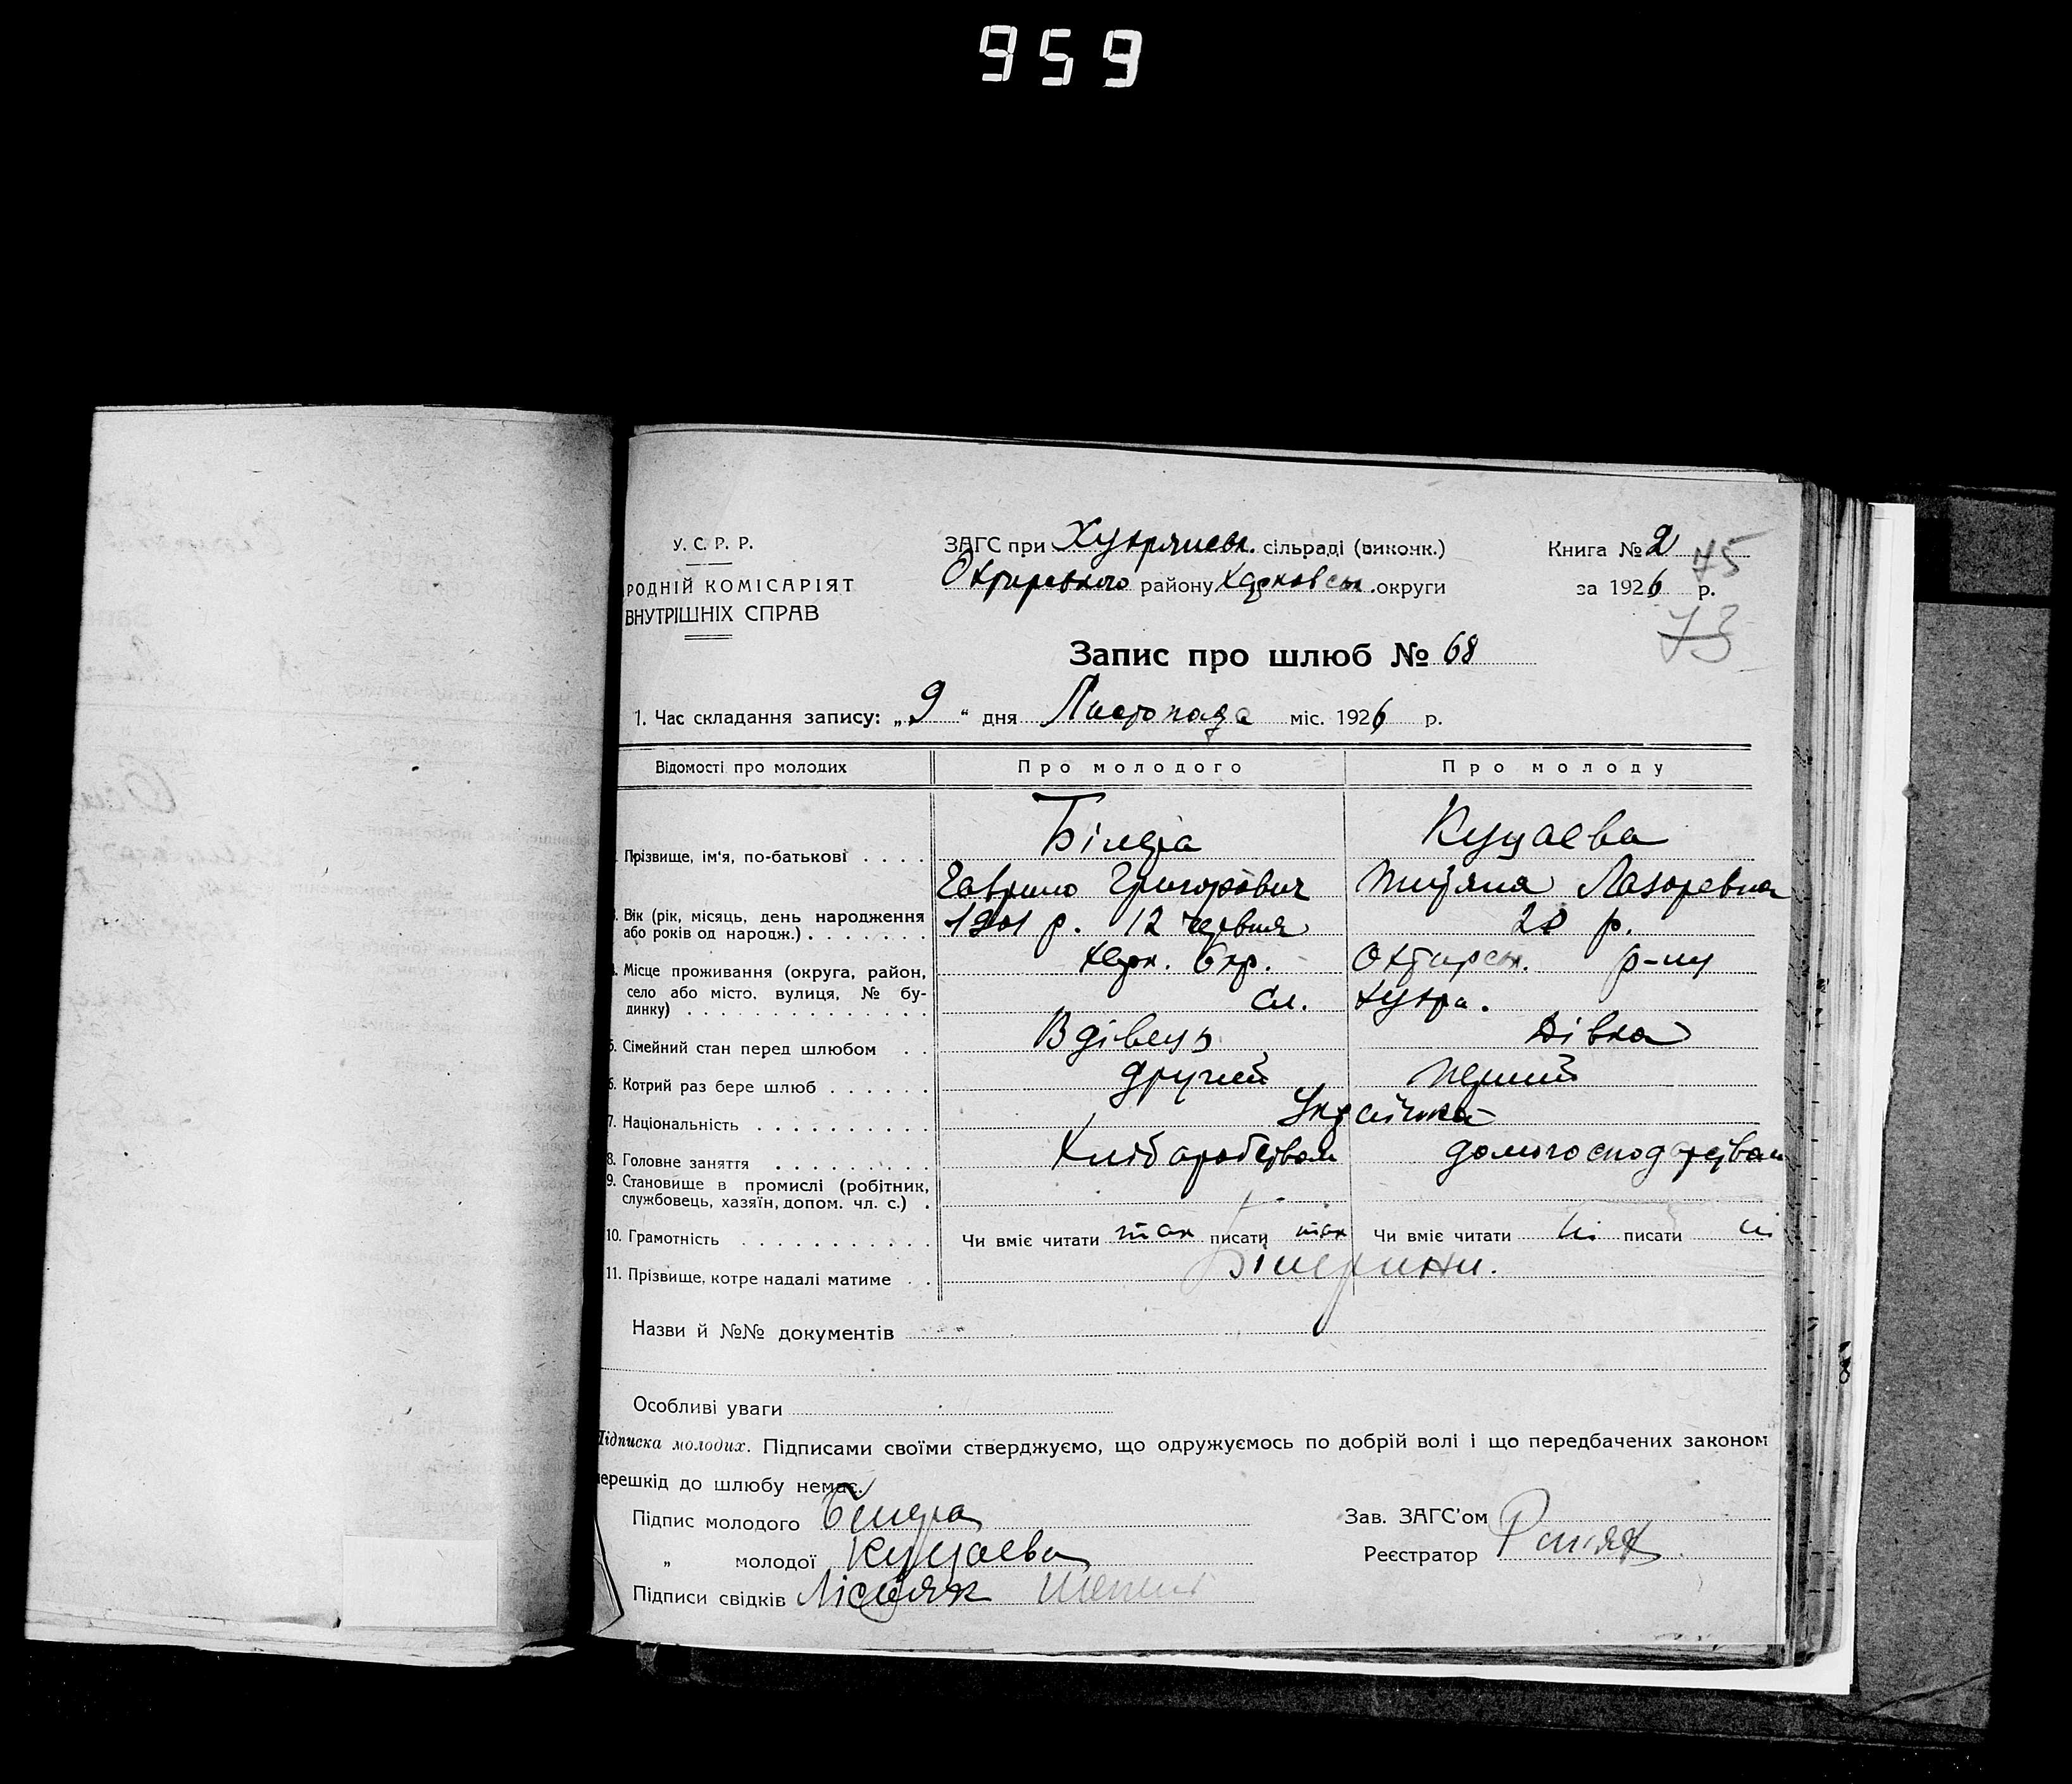 959
У. С. Р. Р.
РОДНІЙ КОМІСАРІЯТ
ВНУТРІШНІХ СПРАВ
ЗАГС при Хухрянськ. сільраді (виконк.)
Охтирського району Харковськ. округи
Книга № 2
75
за 1926 р.
73
Запис про шлюб № 68
1. Час складання запису: „9“ дня Листопада міс. 1926 р.
Відомості про молодих Про молодого Про молоду
Прізвище, ім'я, по-батькові . . . .
Білера Куцаева
Гаврило Григорович Титяна Лазаревна
Вік (рік, місяць, день народження
або років од народж.) . . . . . . .
1901 р. 12 червня 20 р.
Місце проживання (округа, район,
село або місто, вулиця, № бу-
динку) . . . . . . . . . . . . . .
Харк. Окр. Охтирськ. р-ну
сл. Хухра.
5. Сімейний стан перед шлюбом . . Вдівець Дівка
6. Котрий раз бере шлюб . . . . . . другий перший
7. Національність . . . . . . . . . . Українка
8. Головне заняття . . . . . . . . . Хліборобством домогосподарством
9. Становище в промислі (робітник,
службовець, хазяїн, допом. чл. с.) .
10. Грамотність . . . . . . . . . . . Чи вміє читати так писати так Чи вміє читати ні писати ні
11. Прізвище, котре надалі матиме . .
Назви й №№ документів
Особливі уваги
Підписка молодих. Підписами своїми стверджуємо, що одружуємось по добрій волі і що передбачених законом
перешкід до шлюбу немає.
Підпис молодого Білера
„ молодої Куцаева
Підписи свідків
Зав. ЗАГС'ом
Реєстратор